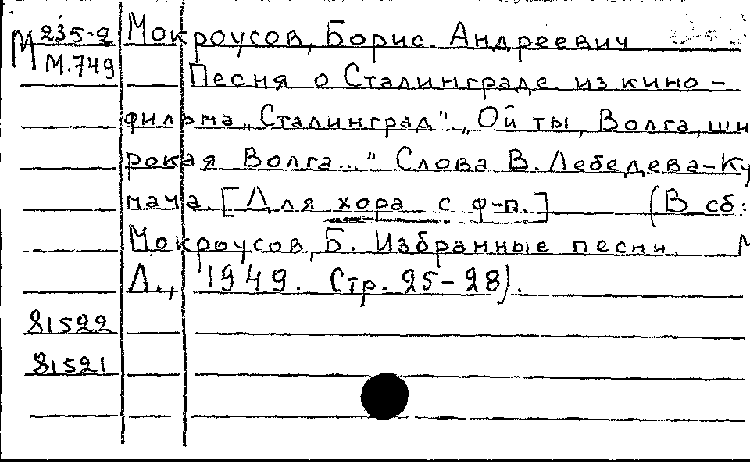 М 235-2
М.749
Мокроусов, Борис Андреевич
Песня о Сталинграде из кино-
фильма „Сталинград" „Ой ты, Волга, ши
рокая Волга..." Слова В. Лебедева-Ку
мача. [Для хора с ф-п.] (В сб:
Мокроусов, Б. Избранные песни. М
Л., 1949. Стр. 25-28).
81522
81521